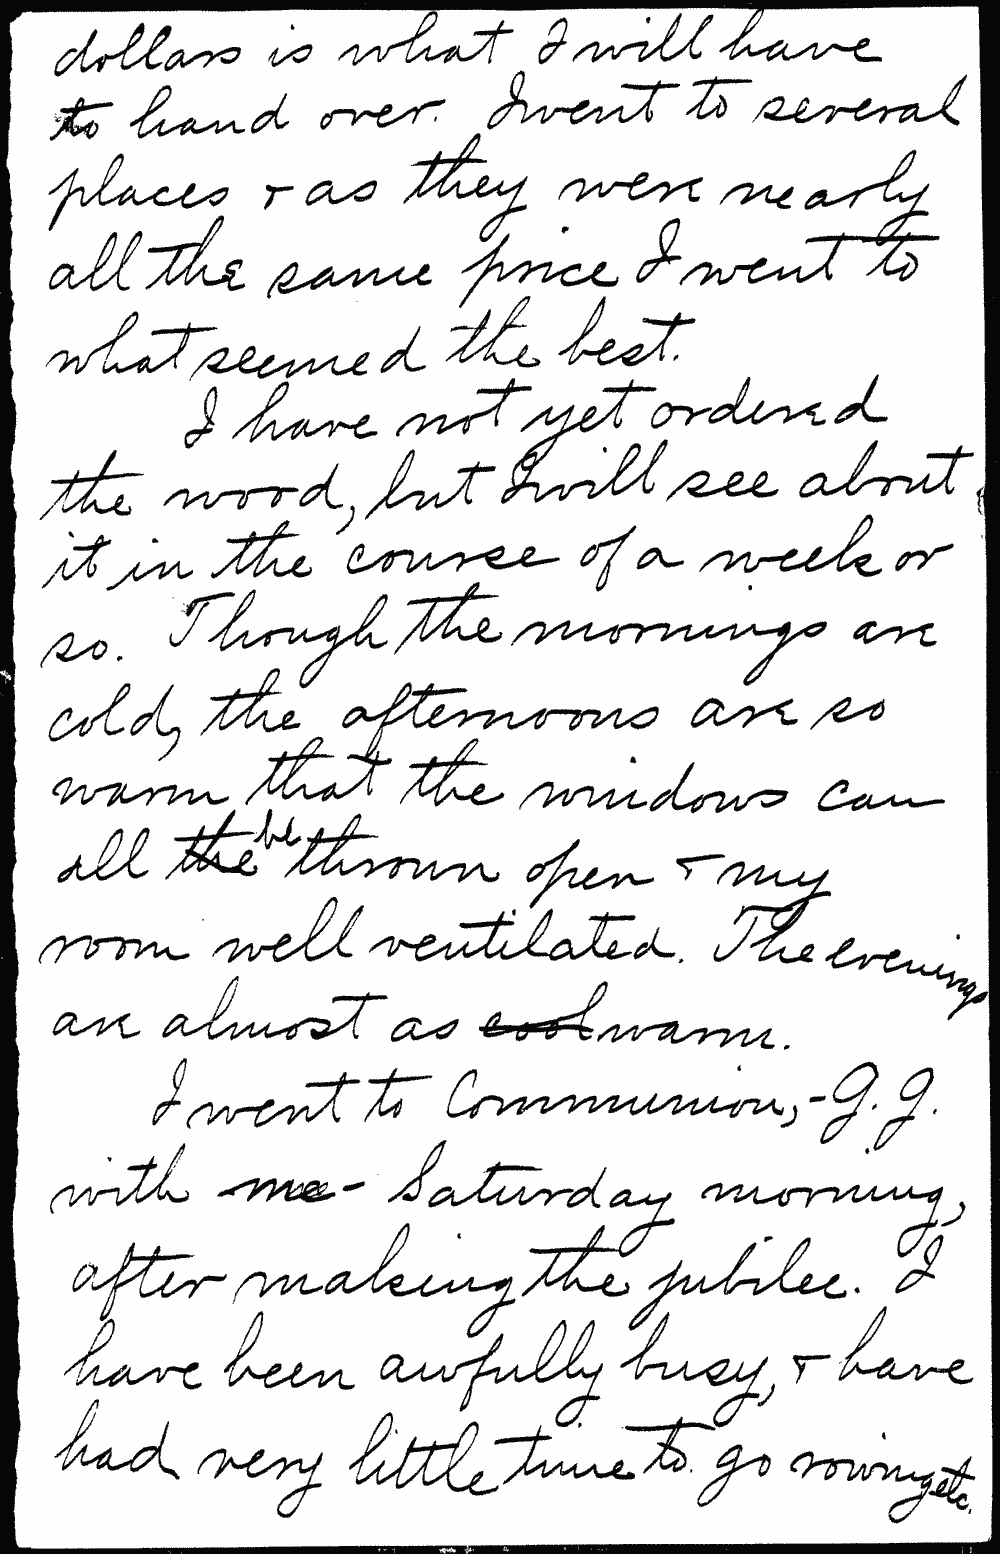 dollars is what I will have
to hand over. I went to several
places + as they were nearly
all the same price I went to
what seemed the best.
I have not yet ordered
the wood, but I will see about
it in the course of a week or
so. Though the mornings are
cold, the afternoons are so
warm that the windows can
all the be thrown open + my
room well ventilated. The evenings
are almost as cool warm.
I went to Communion, - G. G.
with me - Saturday morning,
after making the jubilee. I
have been awfully busy, + have
had very little time to go rowing etc.